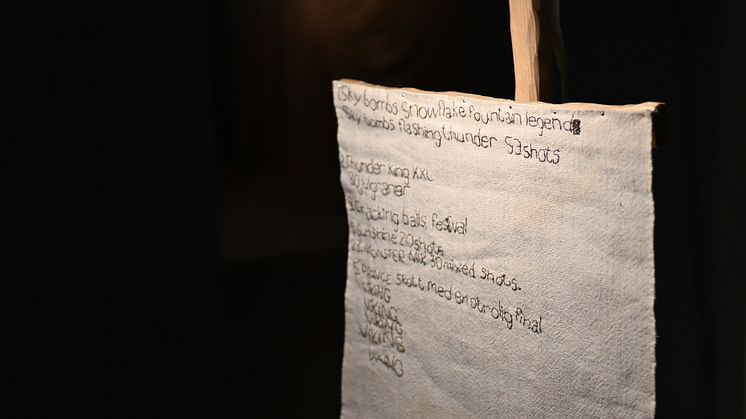 1Sky bombs Snowflake fountain legend
Sky bombs flashing thunder 53shots
2.Thunder King XXL
30 julgranar
3.Cracking balls, festival
4.Sunshine 20shots
MONSTER MIX 30 mixed shots.
5. skott med en otrolig final
VIKING
VIKING
VIKING
VIKING
VIKING